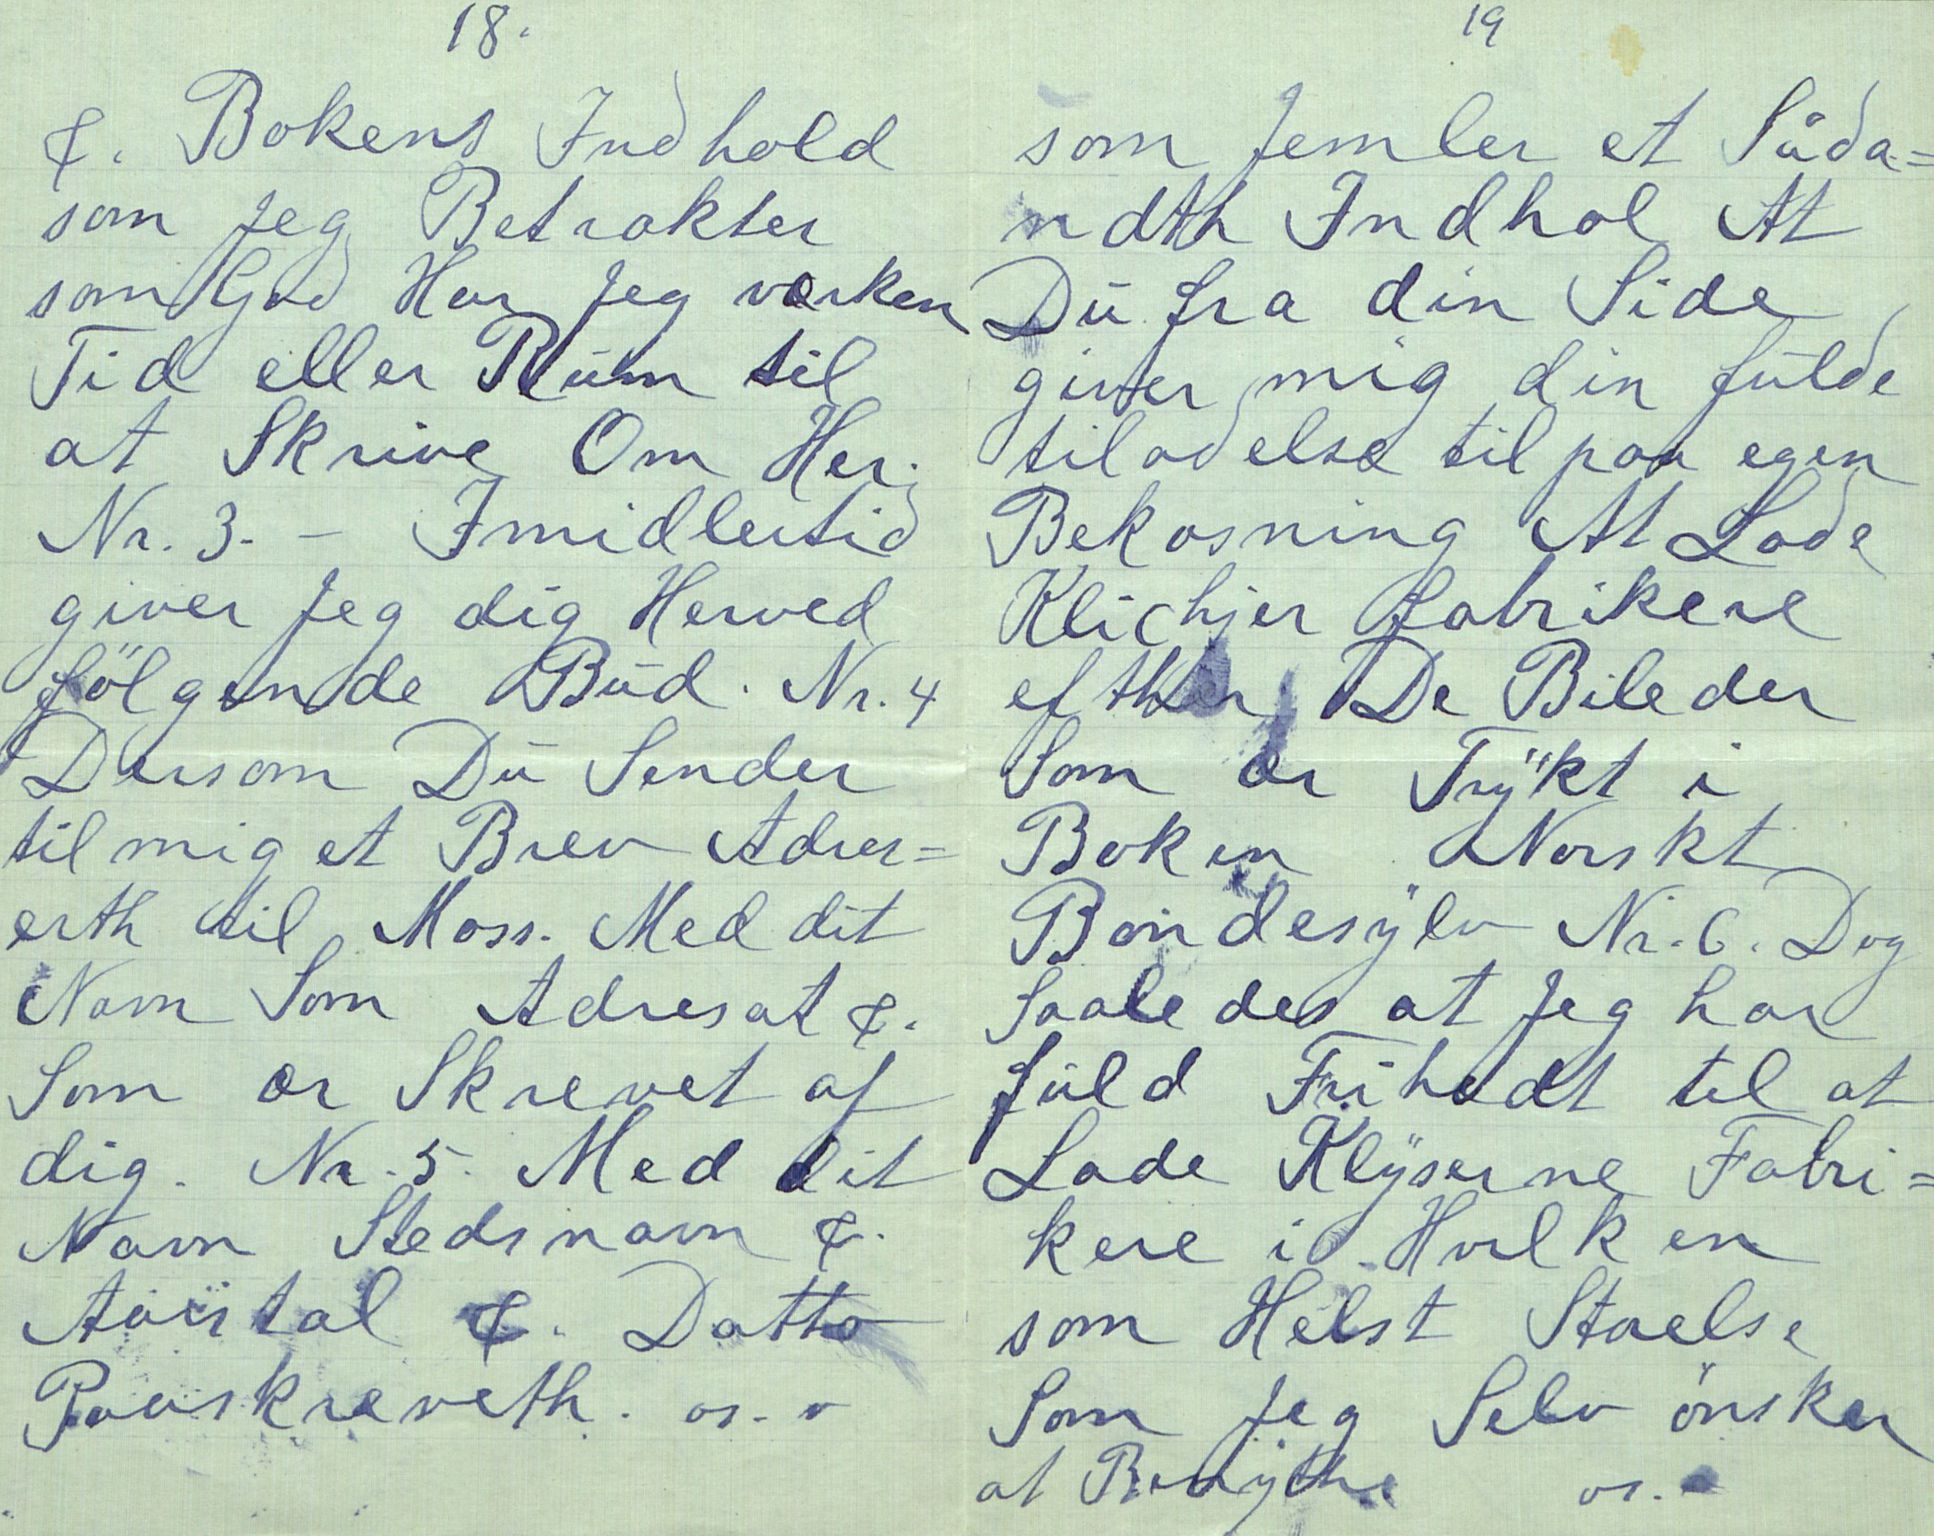 18.
&. Bokens Indhold
som Jeg Betrakter
som God Har Jeg værken
Tid eller Rŭm til
at Skrive Om Her.
Nr. 3. - Imidlertid
giver Jeg dig Herved
fölgende Bŭd. Nr. 4
Dersom Dŭ Sender
til mig et Brev Adres=
erth til Moss. Med dit
Navn Som Adresat &.
Som er Skrevet af
dig. Nr. 5. Med dit
Navn Stedsnavn &.
Aarstal &. Datto
Paaskreveth. os. v
19
som Jemler et Såda=
ndth Indhol At
Dŭ fra din Side
giver mig din fŭlde
tiladelse til paa egen
Bekosning At Lade
Klichjer fabrikere
efther De Bileder
Som er Trÿkt i
Boken Norskt
Bondesÿlv Nr. 6. Dog
Saaledes at Jeg har
fŭld Frihedt til at
Lade Klÿserne Fabri=
kere i Hvilken
som Helst Støelse
Som Jeg Selv önsker
at Benÿthe os.